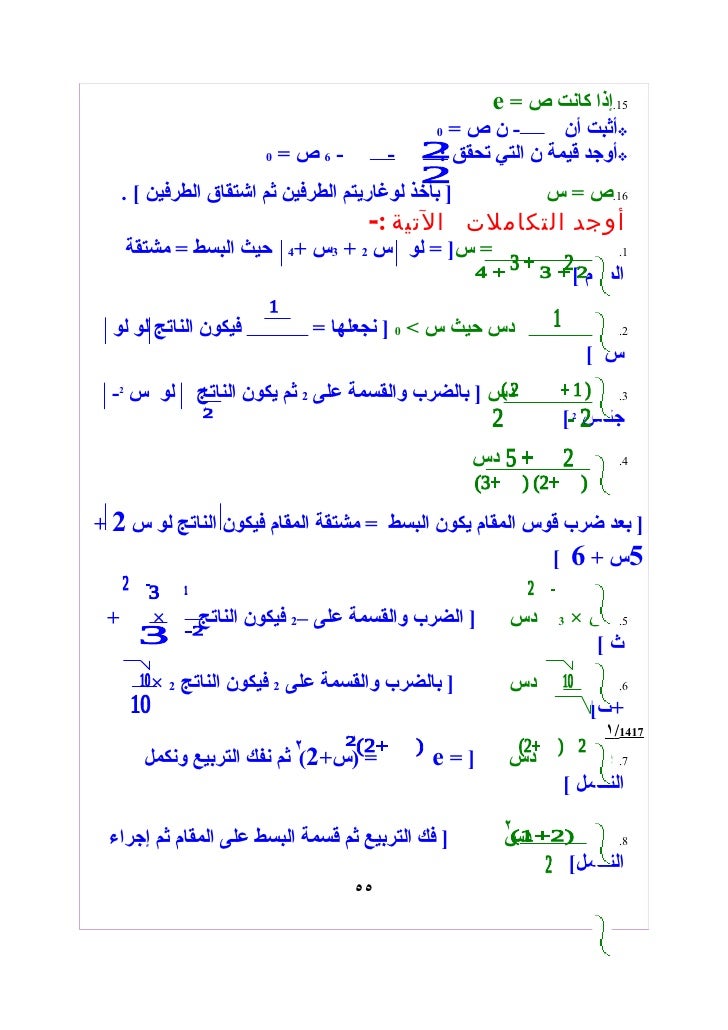 15. إذا كانت ص = e
❖ أثبت أن ـــ - ن ص = 0
❖ أوجد قيمة ن التي تحقق 2 - - 6 ص = 0
2
16. ص = س [ بأخذ لوغاريتم الطرفين ثم اشتقاق الطرفين ] .
أوجد التكاملات الآتية :-
1. 2 + 3 = س [ = لو | س 2 + 3س + 4 | حيث البسط = مشتقة
2 + 3 + 4
]
2. 1 دس حيث س > 0 [ نجعلها = 1 فيكون الناتج لو لو
س ]
3. (1 + 2) دس [ بالضرب والقسمة على 2 ثم يكون الناتج | لو س 2 - |
2 - 2 2
4. 2 + 5 دس
( +2) ( +3)
[ بعد ضرب قوس المقام يكون البسط = مشتقة المقام فيكون الناتج لو س 2 +
5س + 6 ]
5. × 3 - 2 دس [ الضرب والقسمة على –2 فيكون الناتج 1 × 3 - 2 +
-2 3
ث ]
6. 10 دس [ بالضرب والقسمة على 2 فيكون الناتج 2 × 10
10
+ث ]
1417/١
7. 2 ( +2) دس [ = e ( +2)2 = (س+2)٢ ثم نفك التربيع ونكمل
]
8. (2+1)٢ دس [ فك التربيع ثم قسمة البسط على المقام ثم إجراء
2
]
٥٥